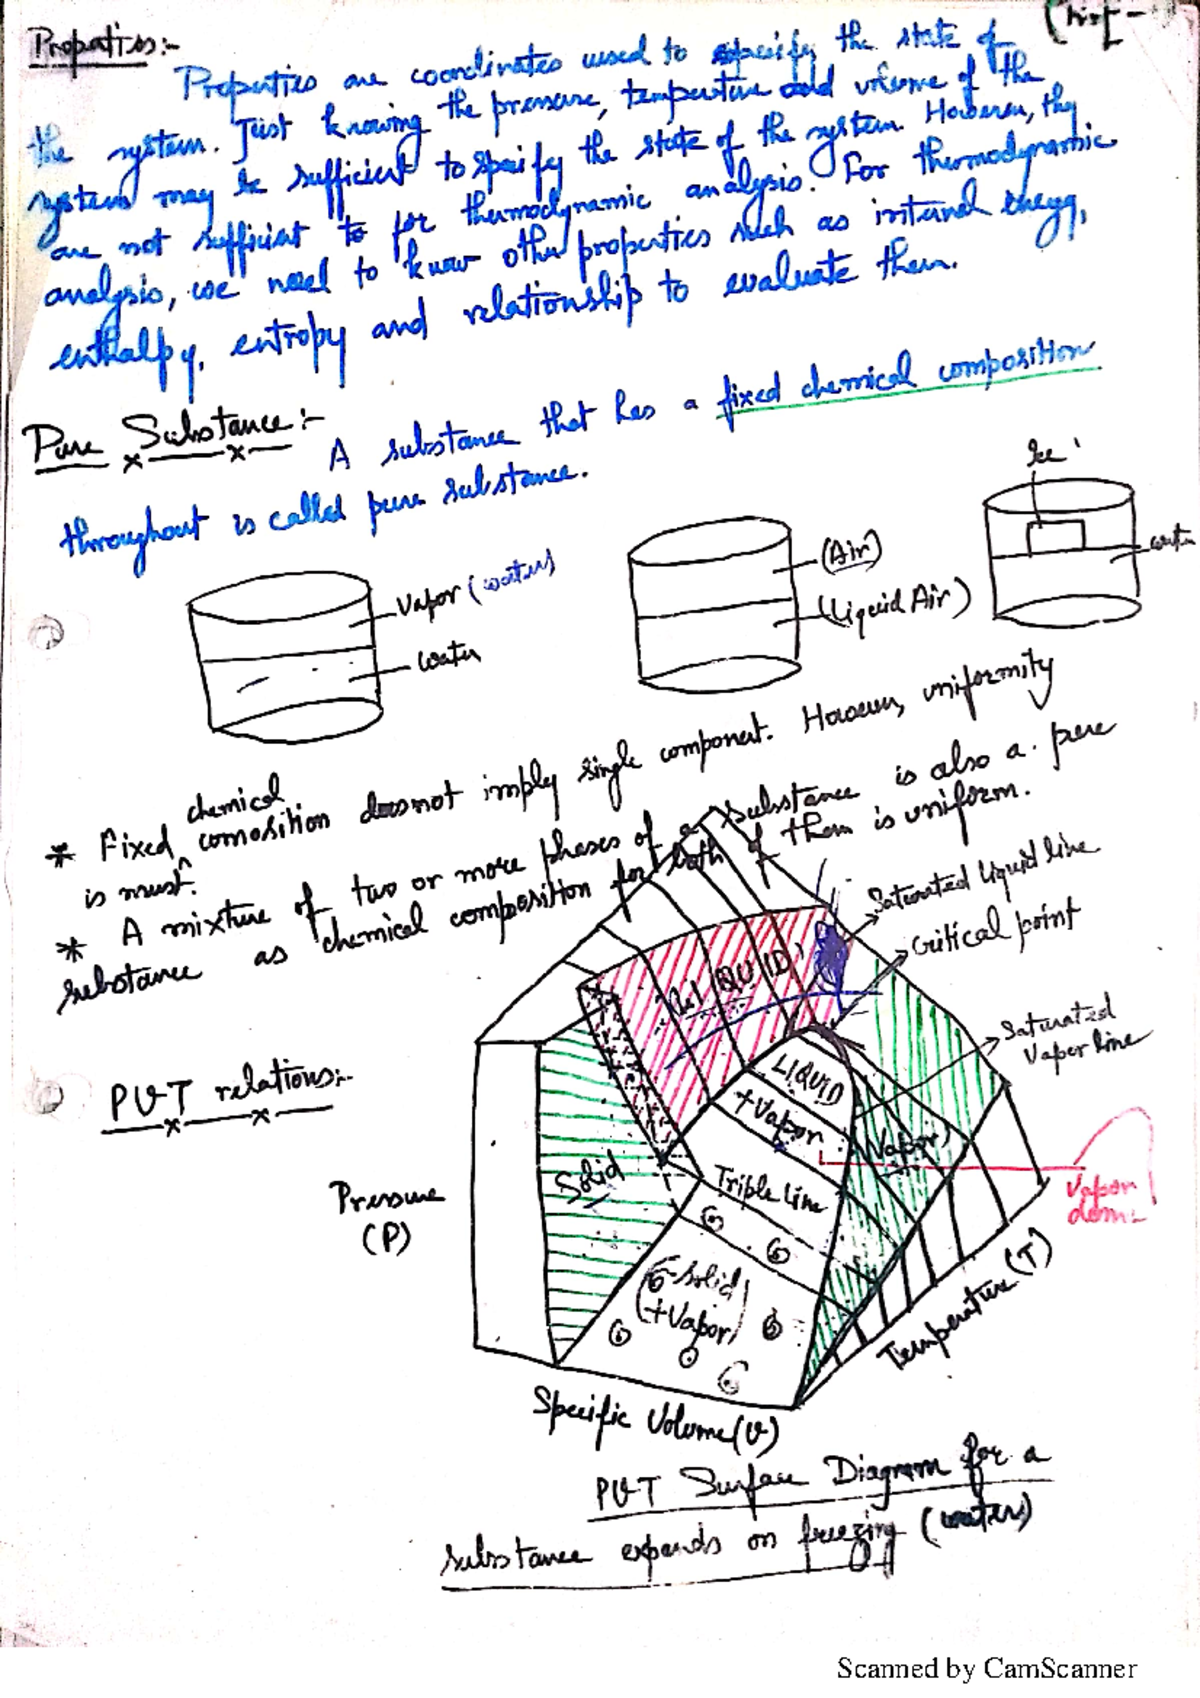 Propatiss:-
Properties are coordinates used to specify the state of
the system. Just knowing the pressure, temperature and volume of the
system may be sufficient to specify the state of the system. However, they
are not sufficient to for thermodynamic analysis. For thermodynamic
analysis, we need to know other properties such as internal energy,
enthalpy, entropy and relationship to evaluate them.
Pure Substance:-
A substance that has a fixed chemical composition
throughout is called pure substance.
Vapor (water)
water
(Air)
(Liquid Air)
Ice
water
* Fixed chemical comosition does not imply single component. However, uniformity
is must.
* A mixture of two or more phases of a substance is also a pure
substance as chemical composition for both of them is uniform.
PVT relations:-
Saturated Liquid line
Critical point
Saturated
Vapor line
LIQUID
LIQUID
+Vapor
(Vapor)
Vapor
dome
Solid
Triple Line
Solid
+Vapor
Pressure
(P)
Specific Volume (V)
Temperature (T)
PVT Surface Diagram for a
substance expands on freezing (water)
Scanned by CamScanner